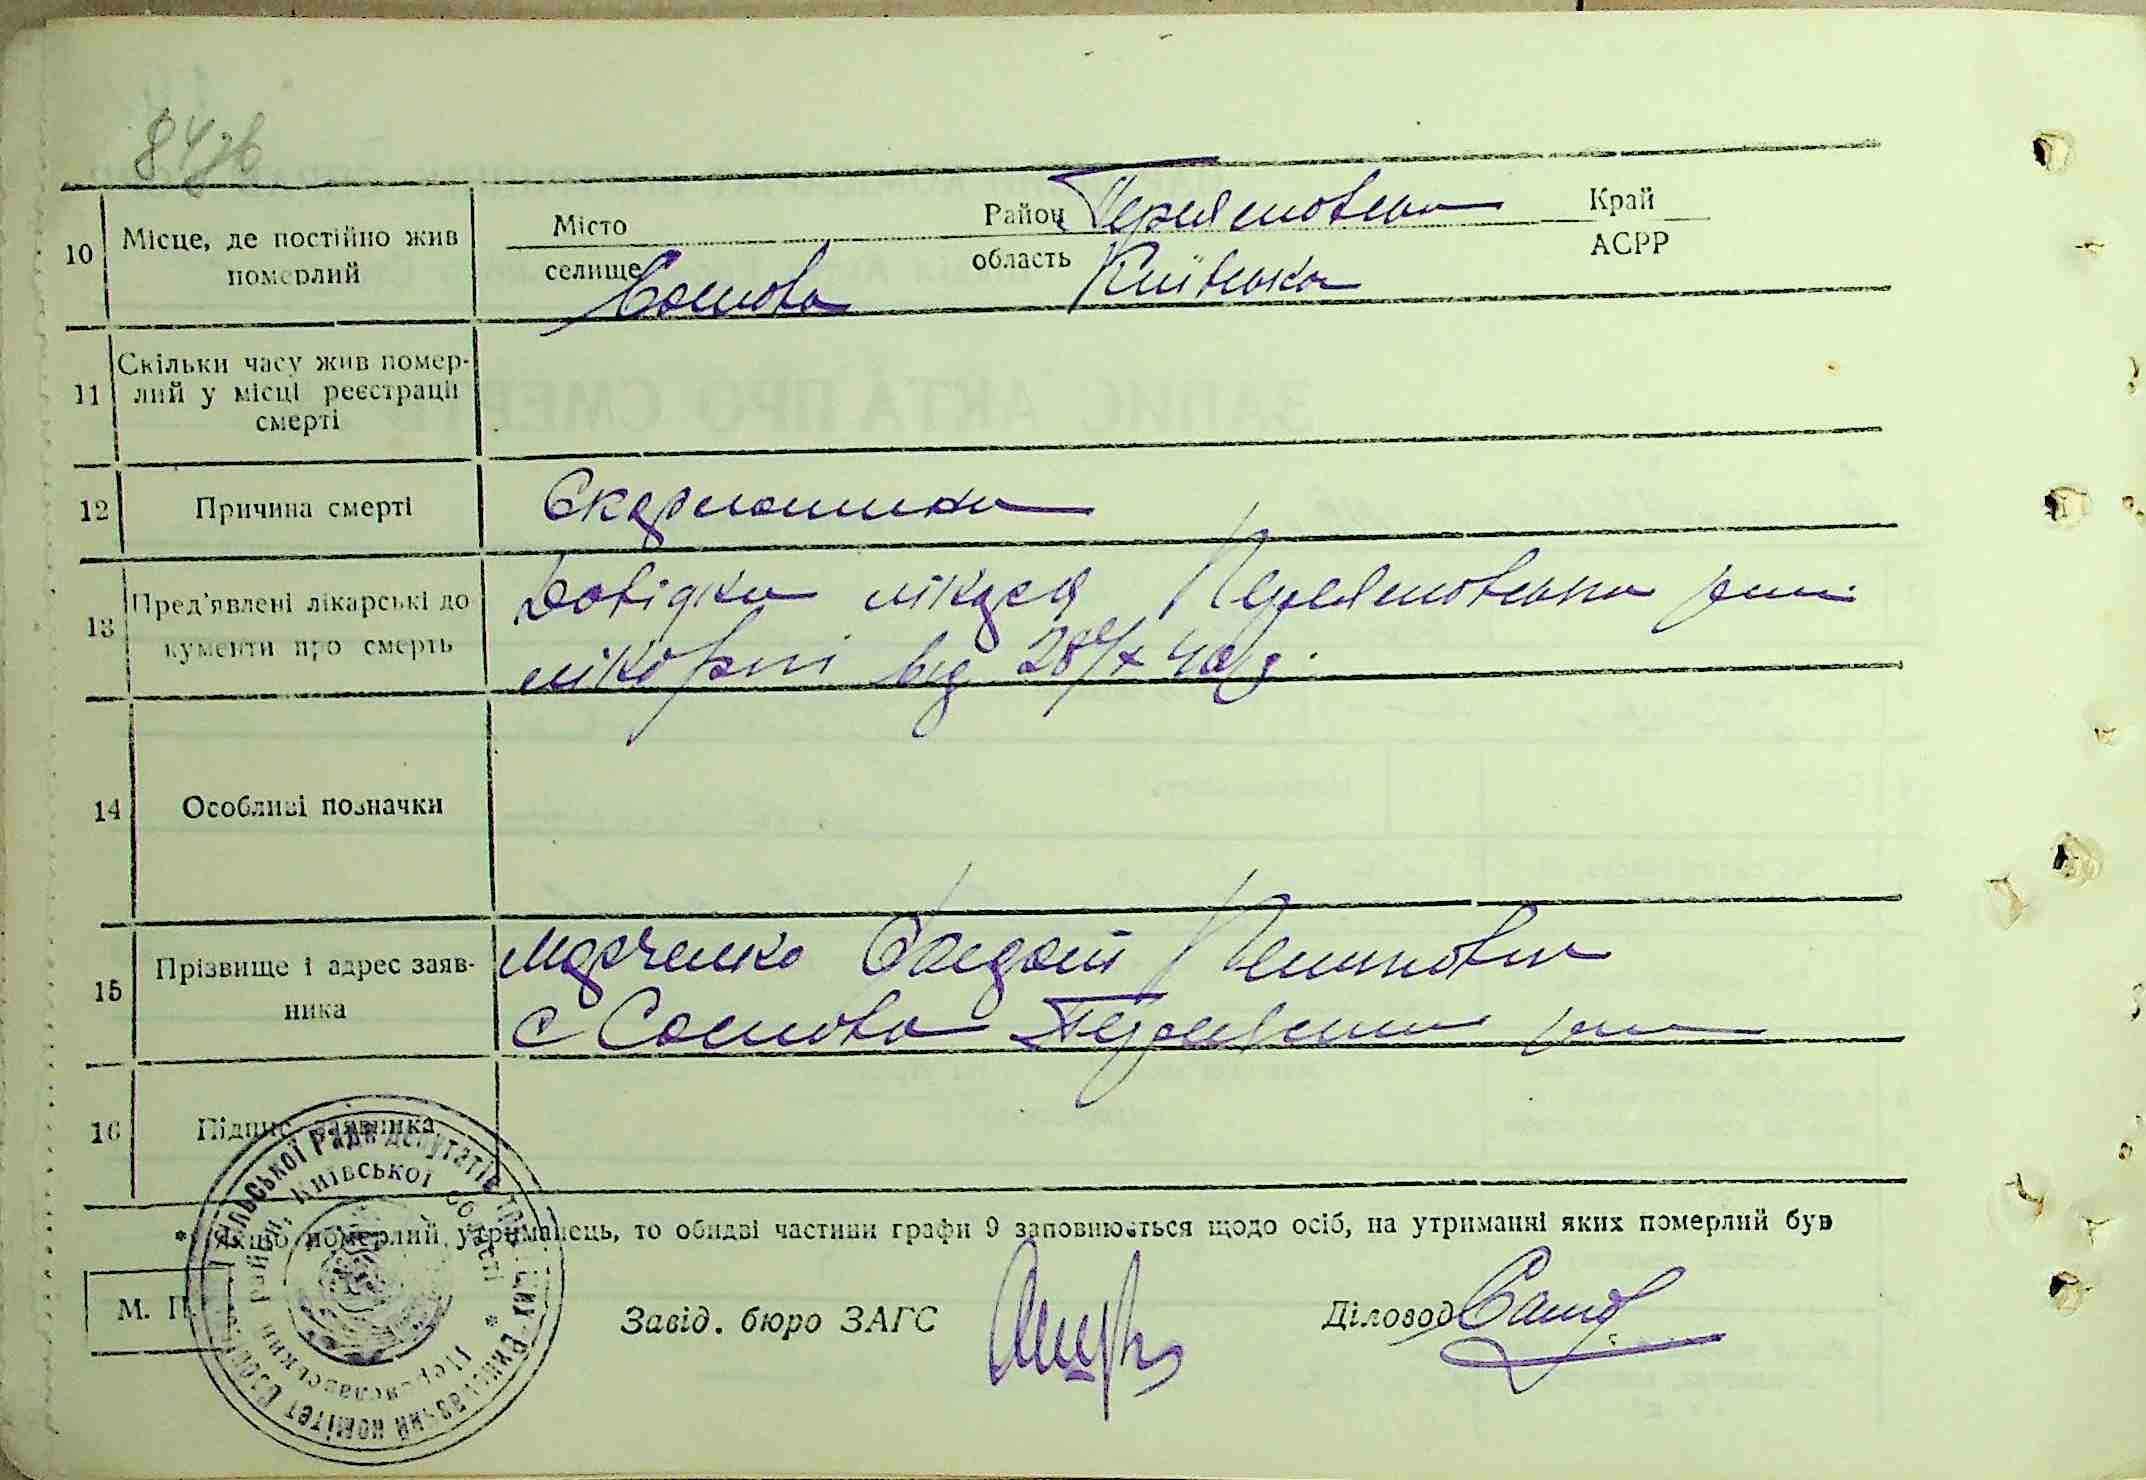 84зв
10 Місце, де постійно жив померлий
Місто Район Переяславська Край
селище Соснова область Київська АСРР
11 Скільки часу жив помер-
лий у місці реєстрації
смерті
12 Причина смерті Скарлатина
13 Пред'явлені лікарські до
кументи про смерть
Довідка лікаря Переяславська рай.
лікарні від 28/X 40 р.
14 Особливі позначки
15 Прізвище і адрес заяв-
ника
Марченко
с Соснова
16 Підпис заявника
* Якщо померлий утриманець, то обидві частини графи 9 заповнюється щодо осіб, на утриманні яких померлий був
М. П.
Завід. бюро ЗАГС
Діловод
Виконавчий комітет
сільської Ради депутатів трудящих
Переяславський район, Київської області